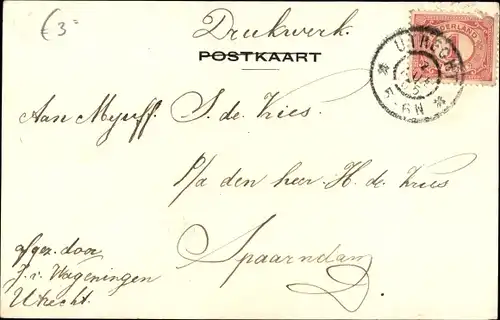 €3=
Drukwerk.
POSTKAART
NEDERLAND
UTRECHT
5-6N
Aan Mejuff. S. de Vries.
P/a den heer H. de Vries
Spaarndam
afgez. door
J. v. Wageningen
Utrecht.